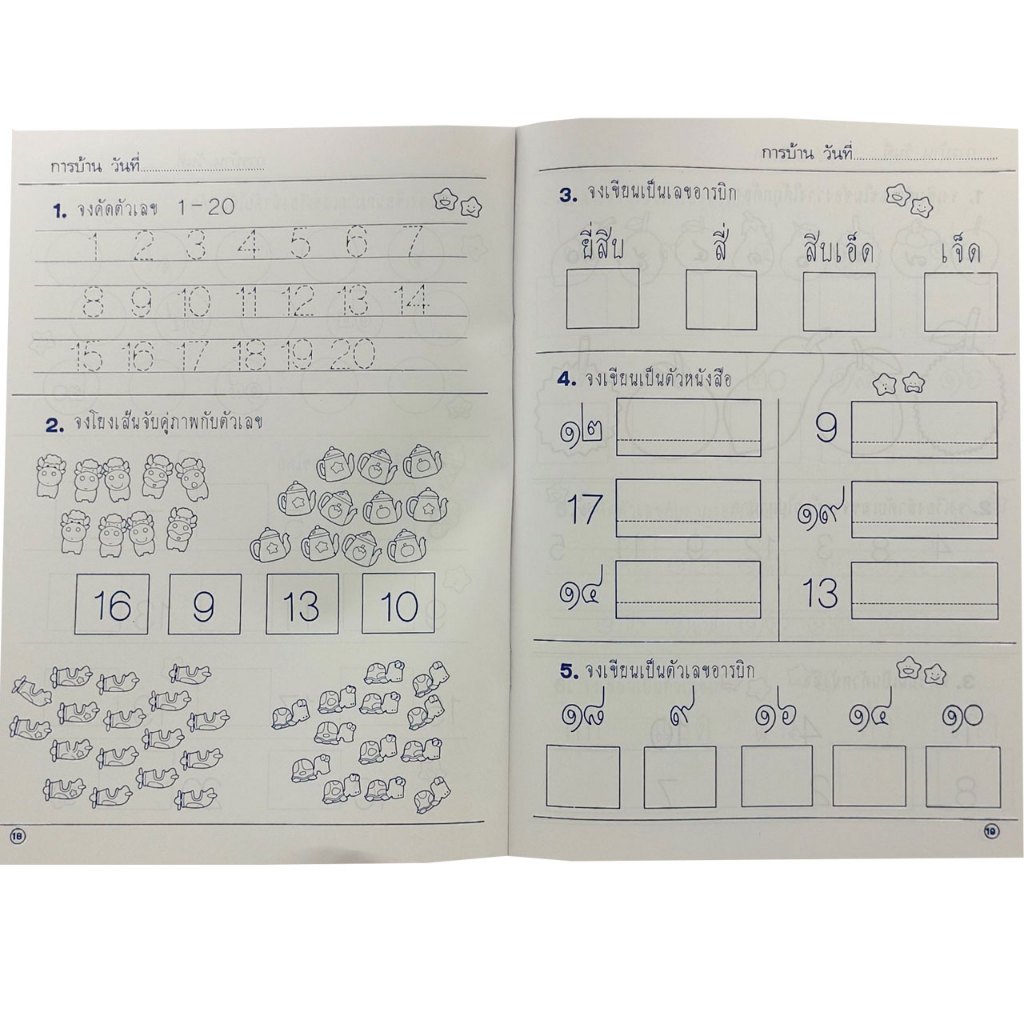 การบ้าน วันที่..............................
1. จงคัดตัวเลข 1-20
1 2 3 4 5 6 7
8 9 10 11 12 13 14
15 16 17 18 19 20
2. จงโยงเส้นจับคู่ภาพกับตัวเลข
16 9 13 10
18
การบ้าน วันที่..............................
3. จงเขียนเป็นเลขอารบิก
ยี่สิบ สี่ สิบเอ็ด เจ็ด
4. จงเขียนเป็นตัวหนังสือ
๑๒ 9
17 ๑๙
๑๔ 13
5. จงเขียนเป็นตัวเลขอารบิก
๑๘ ๙ ๑๖ ๑๔ ๑๐
19